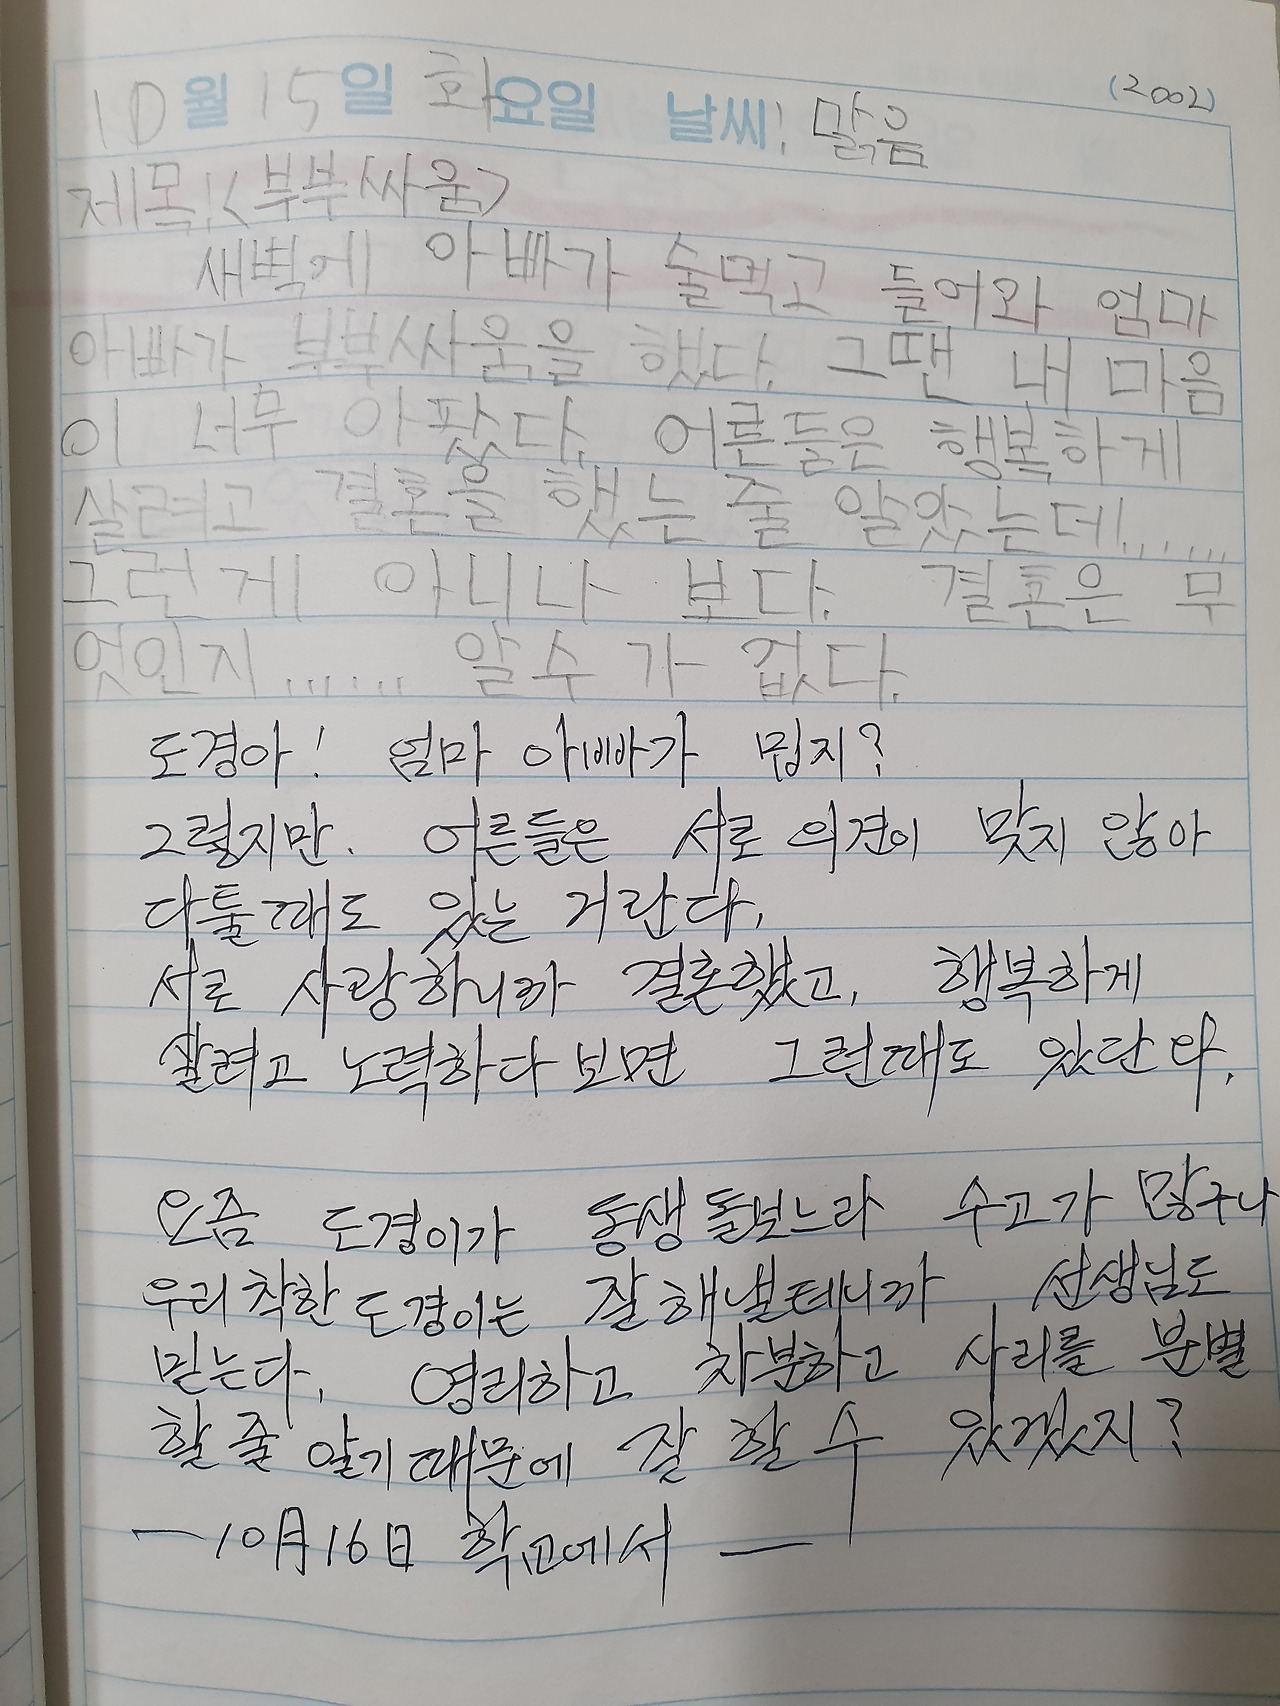 (2002)
10월 15일 화요일 날씨: 맑음
제목:<부부싸움>
새벽에 아빠가 술먹고 들어와 엄마
아빠가 부부싸움을 했다. 그땐 내 마음
이 너무 아팠다. 어른들은 행복하게
살려고 결혼을 했는 줄 알았는데......
그런게 아니나 보다. 결혼은 무
엇인지...... 알수가 겂다.
도경아! 엄마 아빠가 밉지?
그렇지만. 어른들은 서로 의견이 맞지 않아
다툴때도 있는 거란다.
서로 사랑하니까 결혼했고, 행복하게
살려고 노력하다보면 그런때도 있단다.
요즘 도경이가 동생돌보느라 수고가 많구나
우리착한 도경이는 잘해낼테니까 선생님도
믿는다. 영리하고 차분하고 사리를 분별
할 줄 알기때문에 잘 할 수 있겠지?
— 10月16日 학교에서 —